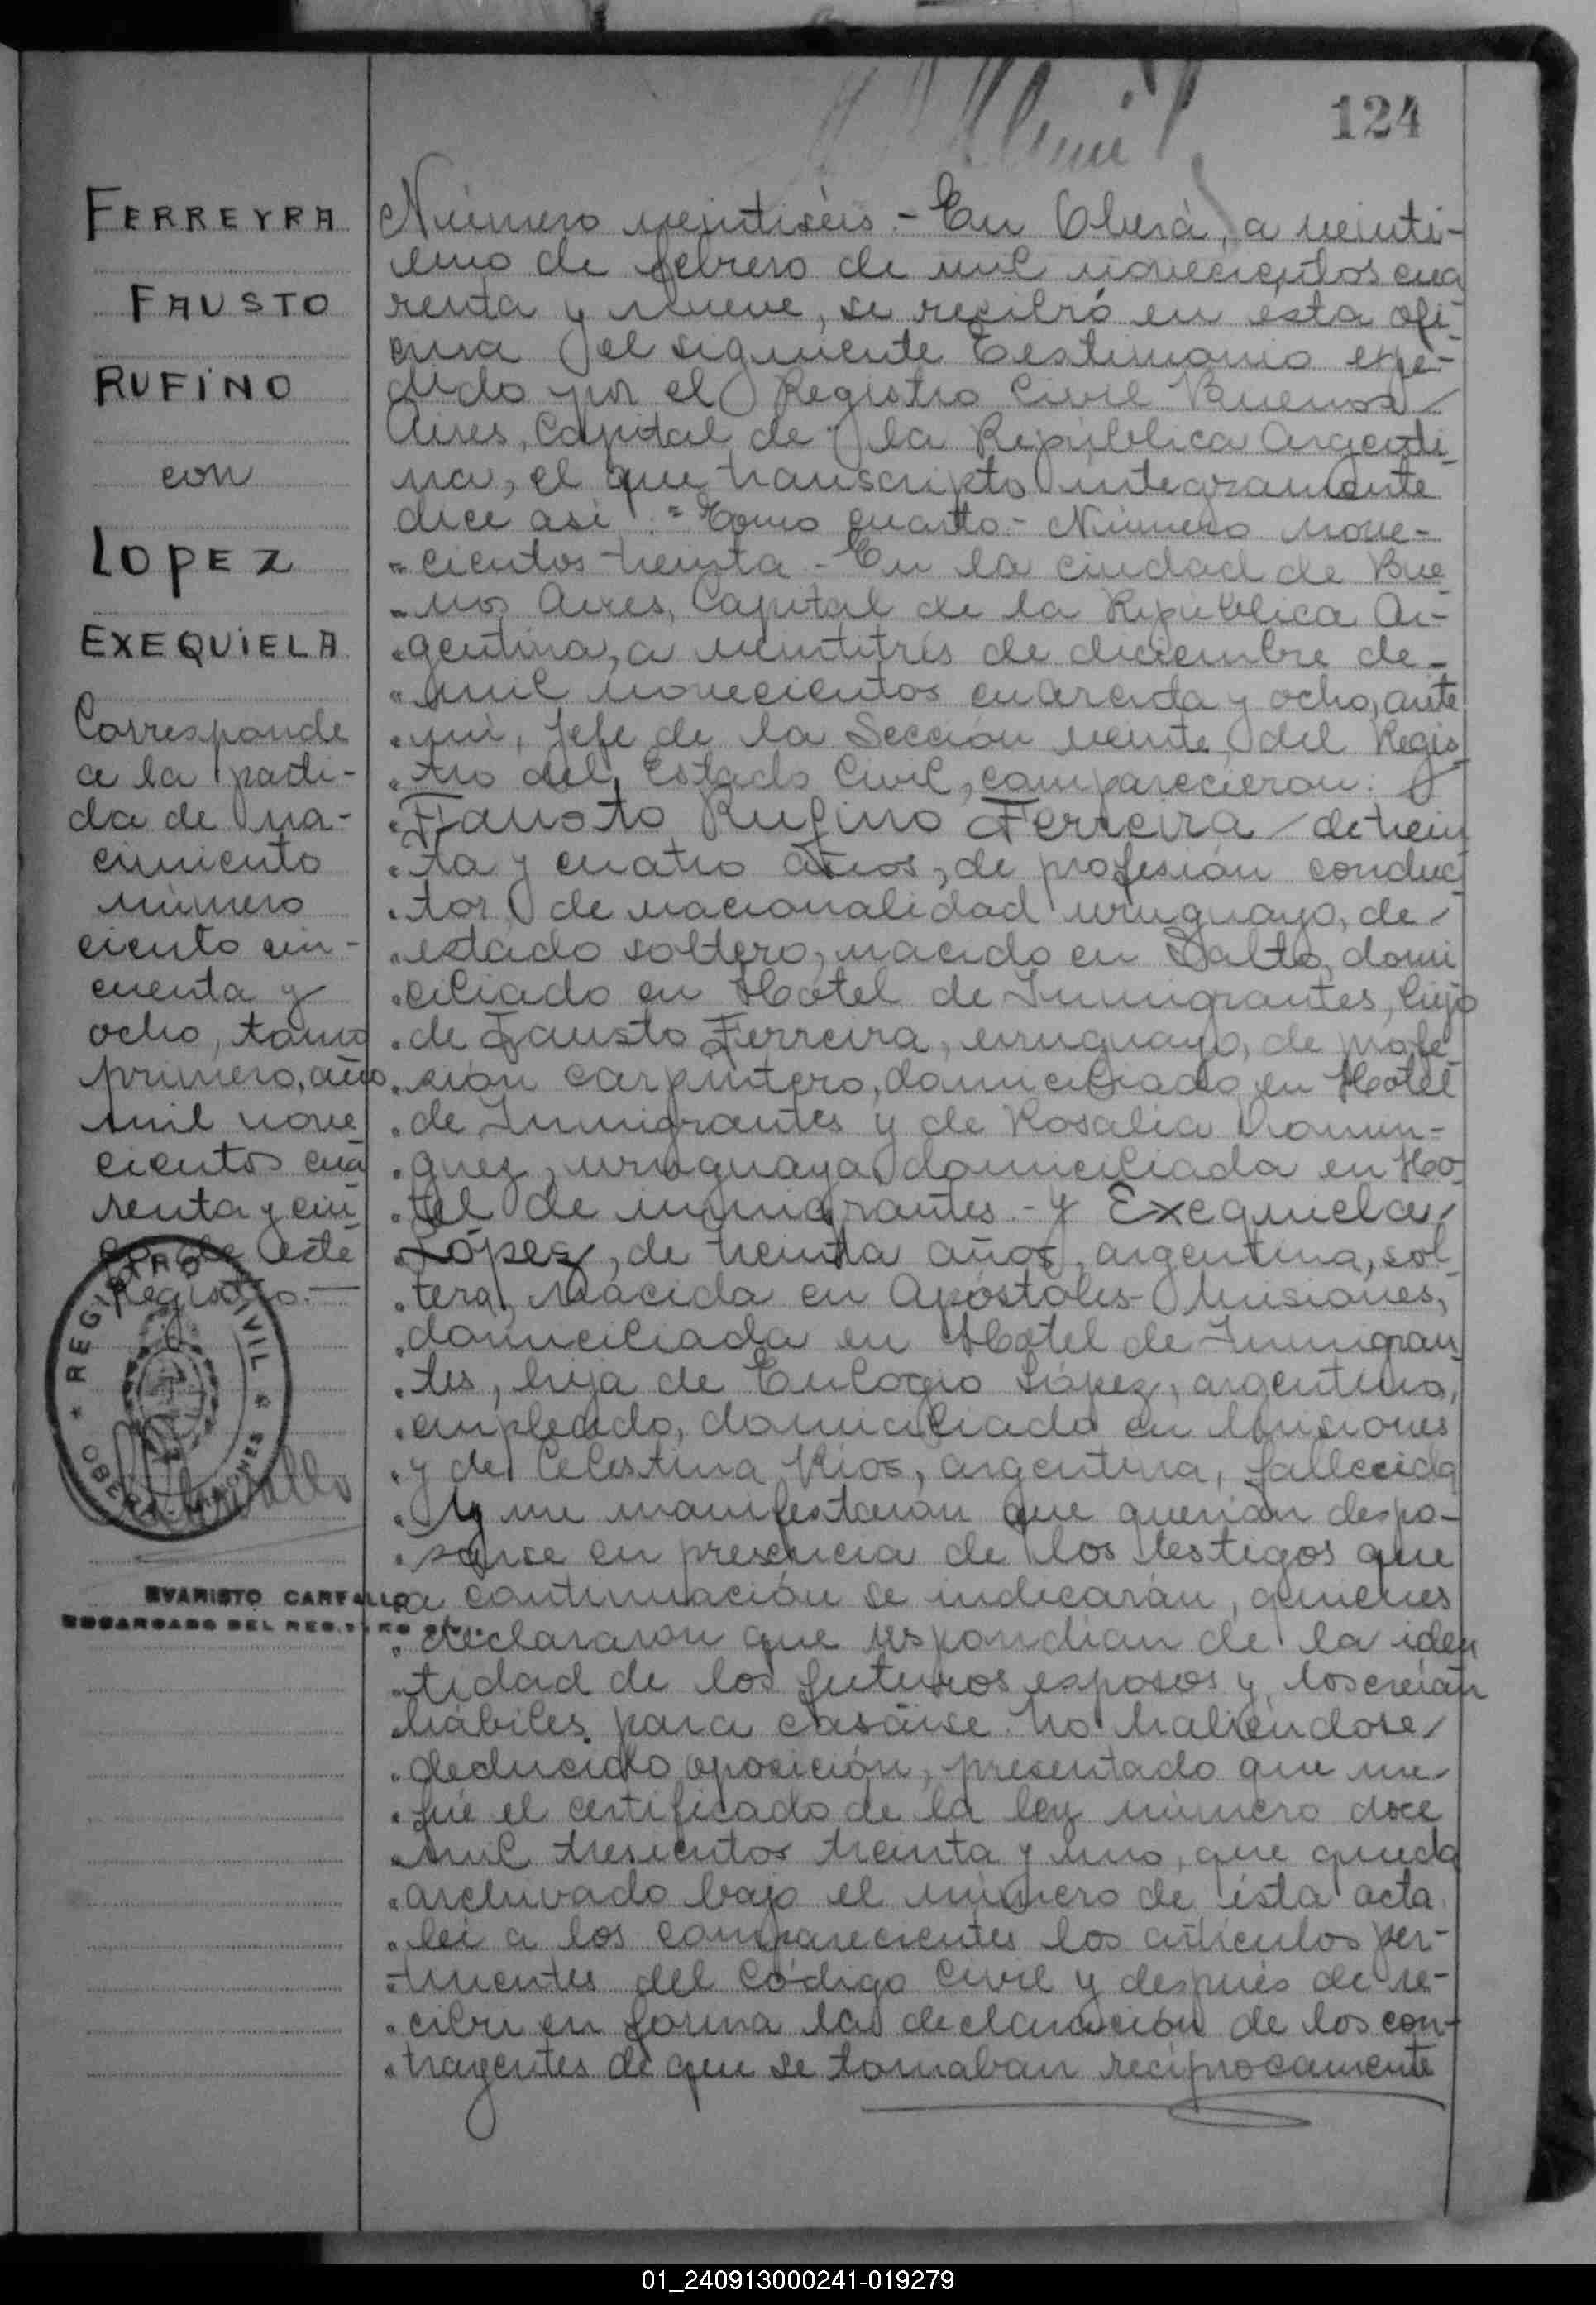 124
FERREYRA
FAUSTO
RUFINO
con
LOPEZ
EXEQUIELA
Corresponde
a la parti-
da de na-
cimiento
número
ciento cin-
cuenta y
ocho, tomo
primero, año
mil nove
cientos cua
renta y cin
co de este
Registro.-
REGISTRO CIVIL
OBERÁ - MISIONES
EVARISTO CARVALLO
ENCARGADO DEL REG.
Número veintiséis.- En Oberá, a veinti-
uno de febrero de mil novecientos cua
renta y nueve, se recibió en esta ofi-
cina el siguiente testimonio expe-
dido por el Registro Civil Buenos
Aires, Capital de la República Argenti-
na, el que transcripto integramente
dice así: "Tomo cuarto - Número nove-
"cientos treinta - En la ciudad de Bue
"nos Aires, Capital de la República Ar-
"gentina, a veintitrés de diciembre de-
"mil novecientos cuarenta y ocho, ante
"mí, Jefe de la Sección veinte, del Regis
"tro del Estado Civil, comparecieron:
"Fausto Rufino Ferreira de trein
"ta y cuatro años, de profesión conduc
"tor de nacionalidad uruguayo, de
"estado soltero, nacido en Salto, domi
"ciliado en Hotel de Inmigrantes, hijo
"de Fausto Ferreira, uruguayo, de profe-
"sión carpintero, domiciliado en Hotel
"de Inmigrantes y de Rosalia Domin-
"guez, uruguaya, domiciliada en Ho-
"tel de inmigrantes.- y Exequiela
"López, de treinta años, argentina, sol
"tera, nacida en Apóstoles- Misiones,
"domiciliada en Hotel de Inmigran
"tes, hija de Eulogio López, argentino,
"empleado, domiciliado en Misiones
"y de Celestina Ríos, argentina, fallecida
"Y me manifestaron que querían despo-
"sarse en presencia de los testigos que
"a continuación se indicarán, quienes
"declararon que respondían de la iden
"tidad de los futuros esposos y los creían
hábiles para casarse. No habiéndose
"deducido oposición, presentado que me
"fué el certificado de la ley número doce
"mil trescientos treinta y uno, que queda
"archivado bajo el número de ésta acta
"leí a los comparecientes los artículos per-
"tinentes del Código Civil y después de re-
"cibir en forma la declaración de los con-
"trayentes de que se tomaban recíprocamente
01_240913000241-019279